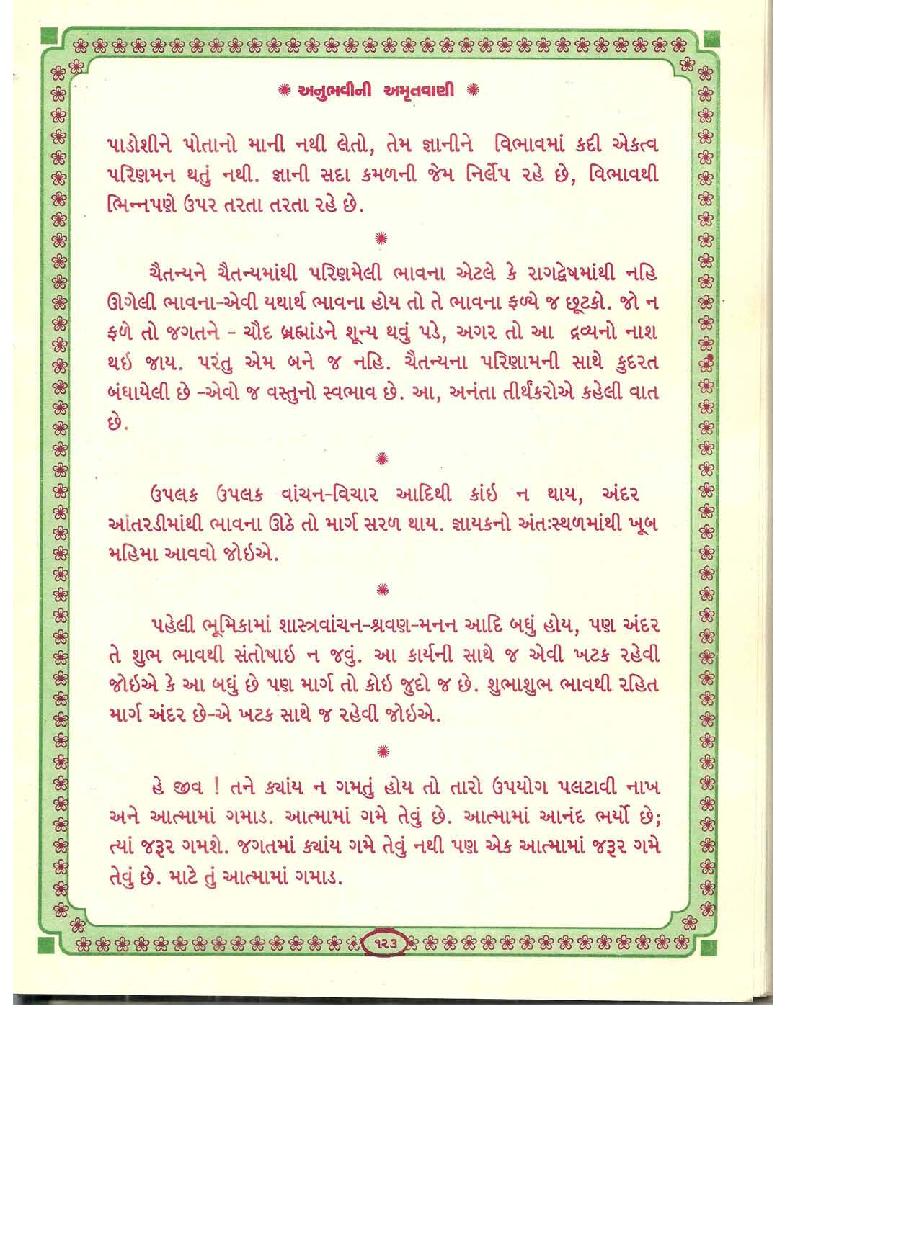 અનુભવીની અમૃતવાણી
પાડોશીને પોતાનો માની નથી લેતો, તેમ જ્ઞાનીને વિભાવમાં કદી એકત્વ
પરિણમન થતું નથી. જ્ઞાની સદા કમળની જેમ નિર્લેપ રહે છે, વિભાવથી
ભિન્નપણે ઉપર તરતા તરતા રહે છે.
ચૈતન્યને ચૈતન્યમાંથી પરિણમેલી ભાવના એટલે કે રાગદ્વેષમાંથી નહિ
ઊગેલી ભાવના-એવી યથાર્થ ભાવના હોય તો તે ભાવના ફળ્યે જ છૂટકો. જો ન
ફળે તો જગતને - ચૌદ બ્રહ્માંડને શૂન્ય થવું પડે, અગર તો આ દ્રવ્યનો નાશ
થઇ જાય. પરંતુ એમ બને જ નહિ. ચૈતન્યના પરિણામની સાથે કુદરત
બંધાયેલી છે -એવો જ વસ્તુનો સ્વભાવ છે. આ, અનંતા તીર્થંકરોએ કહેલી વાત
છે.
ઉપલક ઉપલક વાંચન-વિચાર આદિથી કાંઇ ન થાય, અંદર
આંતરડીમાંથી ભાવના ઊઠે તો માર્ગ સરળ થાય. જ્ઞાયકનો અંતઃસ્થળમાંથી ખૂબ
મહિમા આવવો જોઇએ.
પહેલી ભૂમિકામાં શાસ્ત્રવાંચન-શ્રવણ-મનન આદિ બધું હોય, પણ અંદર
તે શુભ ભાવથી સંતોષાઇ ન જવું. આ કાર્યની સાથે જ એવી ખટક રહેવી
જોઇએ કે આ બધું છે પણ માર્ગ તો કોઇ જુદો જ છે. શુભાશુભ ભાવથી રહિત
માર્ગ અંદર છે-એ ખટક સાથે જ રહેવી જોઇએ.
હે જીવ ! તને ક્યાંય ન ગમતું હોય તો તારો ઉપયોગ પલટાવી નાખ
અને આત્મામાં ગમાડ. આત્મામાં ગમે તેવું છે. આત્મામાં આનંદ ભર્યો છે;
ત્યાં જરૂર ગમશે. જગતમાં ક્યાંય ગમે તેવું નથી પણ એક આત્મામાં જરૂર ગમે
તેવું છે. માટે તું આત્મામાં ગમાડ.
૧૨૩